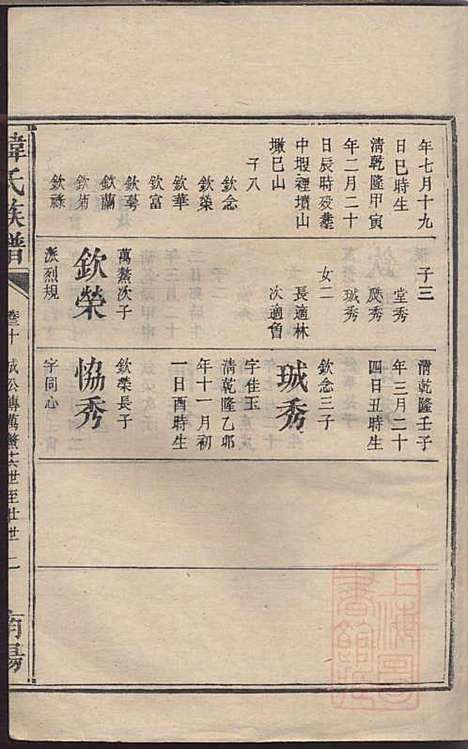 年七月十九
日巳時生
清乾隆甲寅
年二月二十
日辰時歿葬
中堰裡墳山
墩巳山
子八
欽念
欽榮
欽華
欽富
欽蘭
欽菊
子三
堂秀
珹秀
女二
長適林
次適曾
欽榮
萬鰲次子
派烈規
清乾隆壬子
年三月二十
四日丑時生
珹秀
欽念三子
字佳玉
清乾隆乙卯
年十一月初
一日酉時生
協秀
欽榮長子
字同心
韓氏族譜
卷十
公傳萬鰲六世至廿世
二
南陽
上海圖書館藏